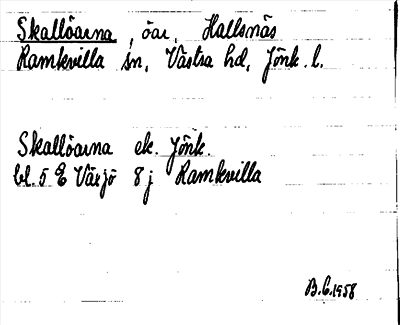 Skallöarna, öar, Hallsnäs
Ramkvilla sn, Västra hd, Jönk. l.
Skallöarna ek. Jönk.
bl. 5 E Växjö 8 j Ramkvilla
B.G.1958